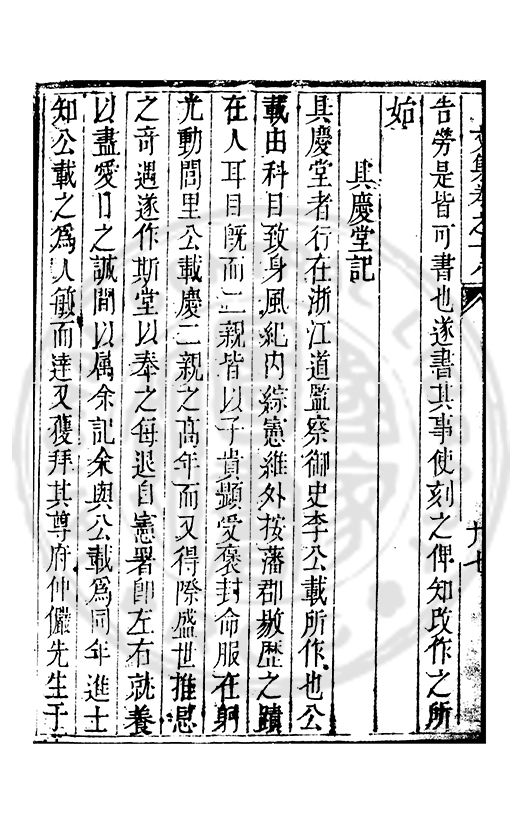 告勞是皆可書也遂書其事使刻之俾知改作之所
始
具慶堂記
具慶堂者行在浙江道監察御史李公載所作也公
載由科目致身風紀内綜憲維外按藩郡敭歷之蹟
在人耳目既而二親皆以子貴顯受褒封命服在躬
光動閭里公載慶二親之高年而又得際盛世推恩
之奇遇遂作斯堂以奉之每退自憲署卽左右就養
以盡愛日之誠間以属余記余與公載爲同年進士
知公載之爲人敏而達又獲拜其尊府仲儼先生于